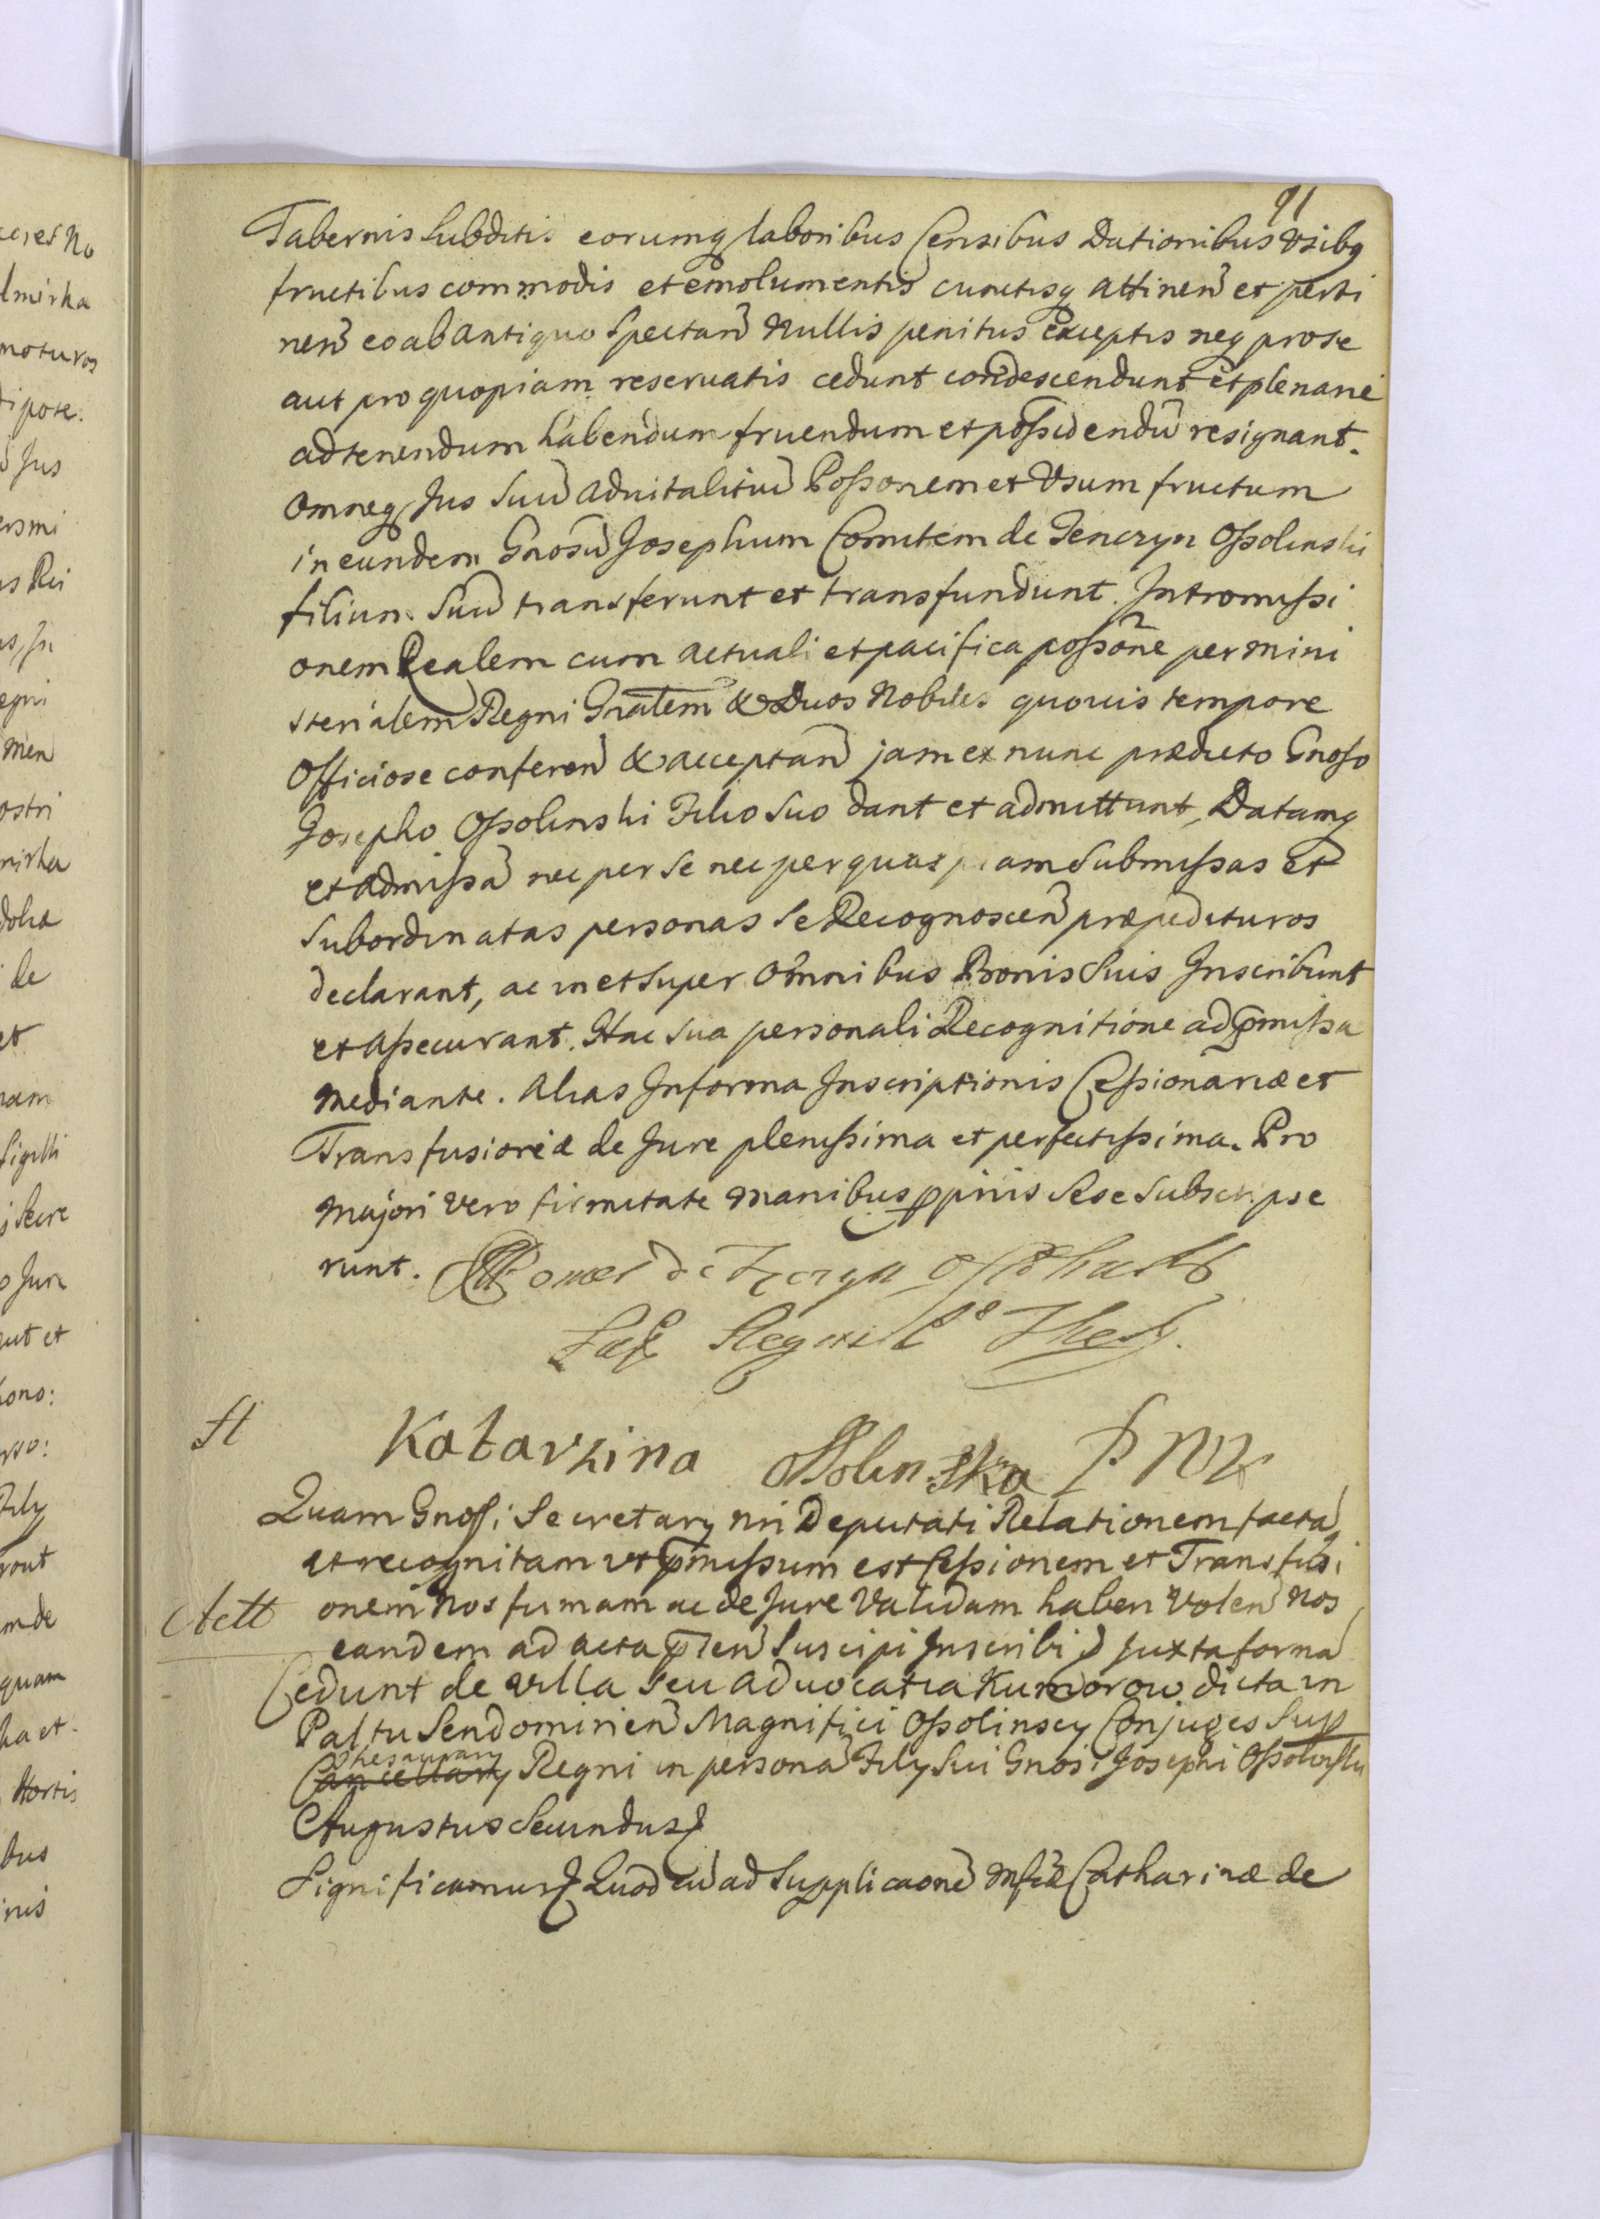 91
Tabernis Subditis eorumq laboribus Censibus Dationibus Usibq
fructibus commodis et emolumentis cunctisq attinen et perti
nen eo ab antiquo Spectan Nullis penitus exceptis neq pro se
aut pro quopiam reservatis cedunt condescendunt et plenarie
ad tenendum habendum fruendum et possidendū resignant.
Omneq Jus Suū advitalitiū Possonem et Usum fructum
in eundem Gnosū Josephum Comitem de Tenczyn Ossolinski
filium Suū transferunt et transfundunt. Intromissi
onem Realem cum actuali et pacifica possone per mini
sterialem Regni Gnalem & Duos Nobiles quovis tempore
Officiose conferen & acceptan jam ex nunc prædicto Gnoso
Josepho Ossolinski Filio Suo dant et admittunt, Datamq
et admissā nec per se nec per quaspiam Submissas et
Subordinatas personas Se Recognoscen præpedituros
declarant, ac in et Super Omnibus Bonis Suis Inscribunt
et assecurant. Hac Sua personali Recognitione ad pmissa
Mediante. Alias In forma Inscriptionis Cessionariæ et
Transfusioriæ de Jure plenissima et perfectissima. Pro
Majori vero firmitate manibus ppriis Sese Subscripse
runt.
Regni
Katarzina Ossolinska P N K
Quam Gnosi Secretary nri Deputati Relationem factā
et recognitam ut pmissum est Cessionem et Transfusi
Actt
onem nos firmam ac de Jure Validam haberi volen nos
eandem ad acta pnen Suscipi Inscribi Juxta formā
Cedunt de Villa Seu advocatia Kumorow dicta in
Paltu Sendomirien Magnifici Ossolinscy Conjuges Sup
Thesaurary
Cancellary Regni in personā Fily Sui Gnosi Josephi Ossolinski
Augustus Secundus
Significamus Quod cū ad Supplicaonē Mfcæ Catharinæ de